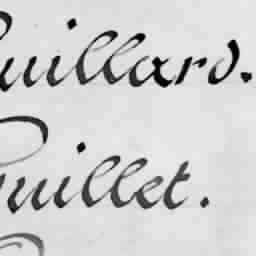 uillard.
Guillet.